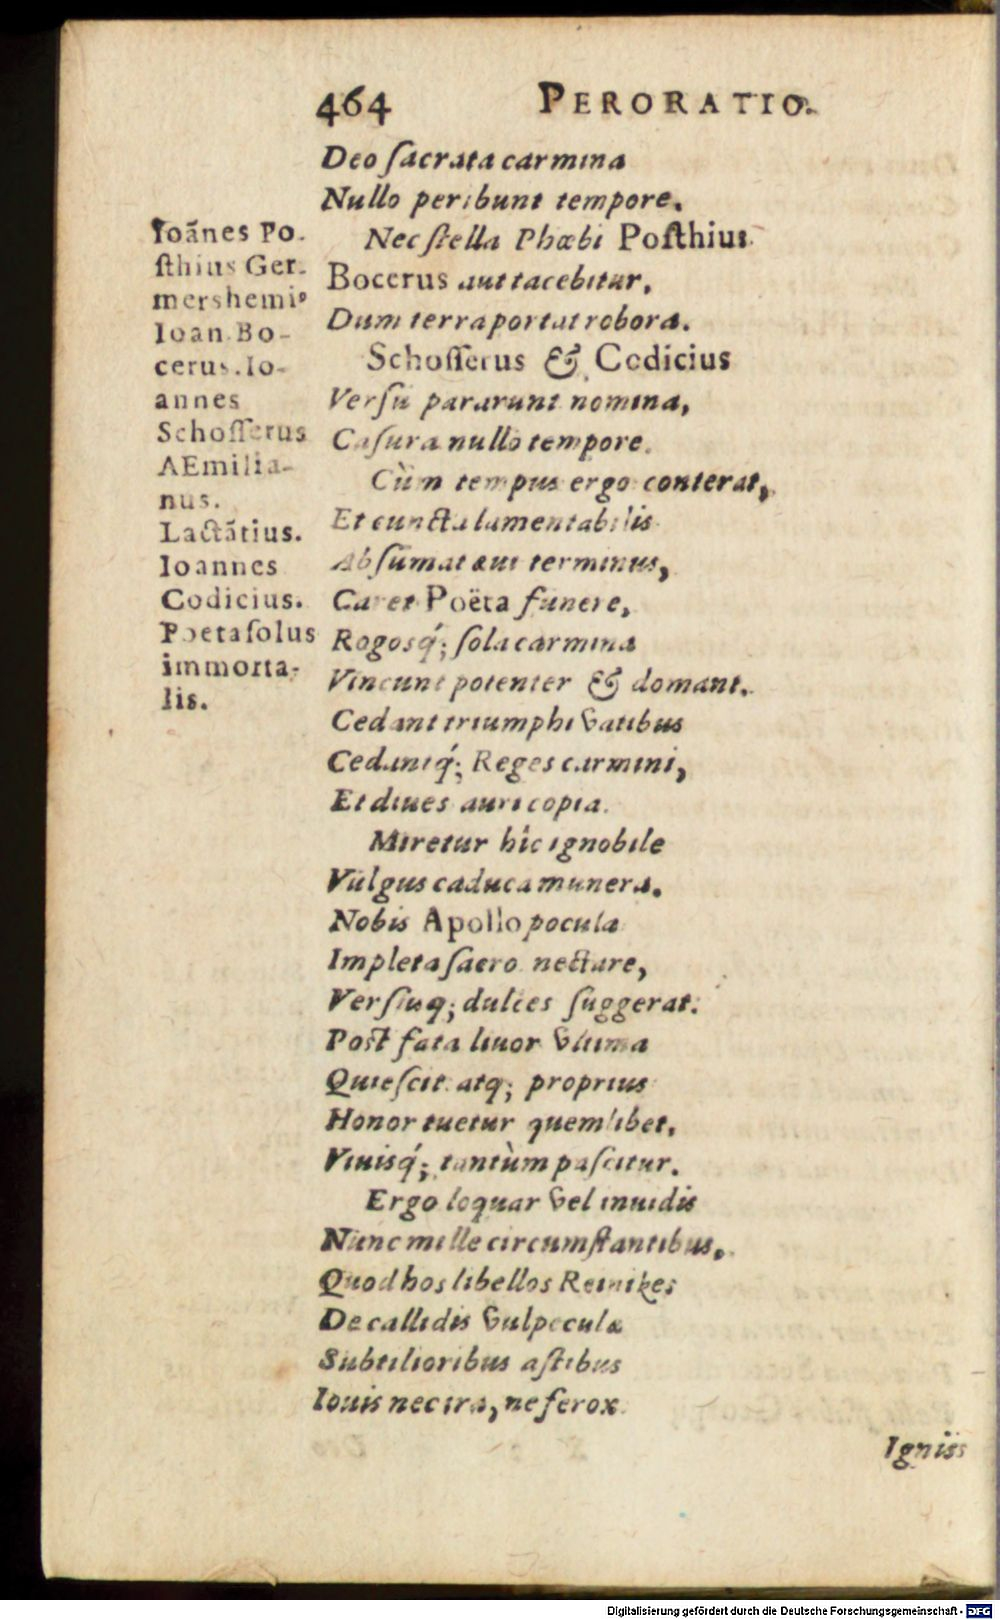 464 PERORATIO.
Deo ſacrata carmina
Nullo peribunt tempore.
Nec ſtella Phœbi Poſthius
Bocerus aut tacebitur,
Dum terra portat robora.
Schoſſerus & Codicius
Verſu pararunt nomina,
Caſura nullo tempore.
Cùm tempus ergo conterat,
Et cuncta lamentabilis
Abſumat æui terminus,
Caret Poëta funere,
Rogosq́; ſola carmina
Vincunt potenter & domant.
Cedant triumphi vatibus
Cedantq́; Reges carmini,
Et diues auri copia.
Miretur hîc ignobile
Vulgus caduca munera.
Nobis Apollo pocula
Impleta ſacro nectare,
Verſusq; dulces ſuggerat.
Poſt fata liuor vltima
Quieſcit atq; proprius
Honor tuetur quemlibet,
Viuisq́; tantùm paſcitur.
Ergo loquar vel inuidis
Nunc mille circumſtantibus,
Quod hos libellos Reinikes
De callidis vulpeculæ
Subtilioribus aſtibus
Iouis nec ira, ne ferox
Igniſs
Ioãnes Po-
ſthius Ger-
mershemiꝰ
Ioan. Bo-
cerus. Io-
annes
Schoſſerus
AEmilia-
nus.
Lactãtius.
Ioannes
Codicius.
Poeta ſolus
immorta-
lis.
Digitalisierung gefördert durch die Deutsche Forschungsgemeinschaft - DFG